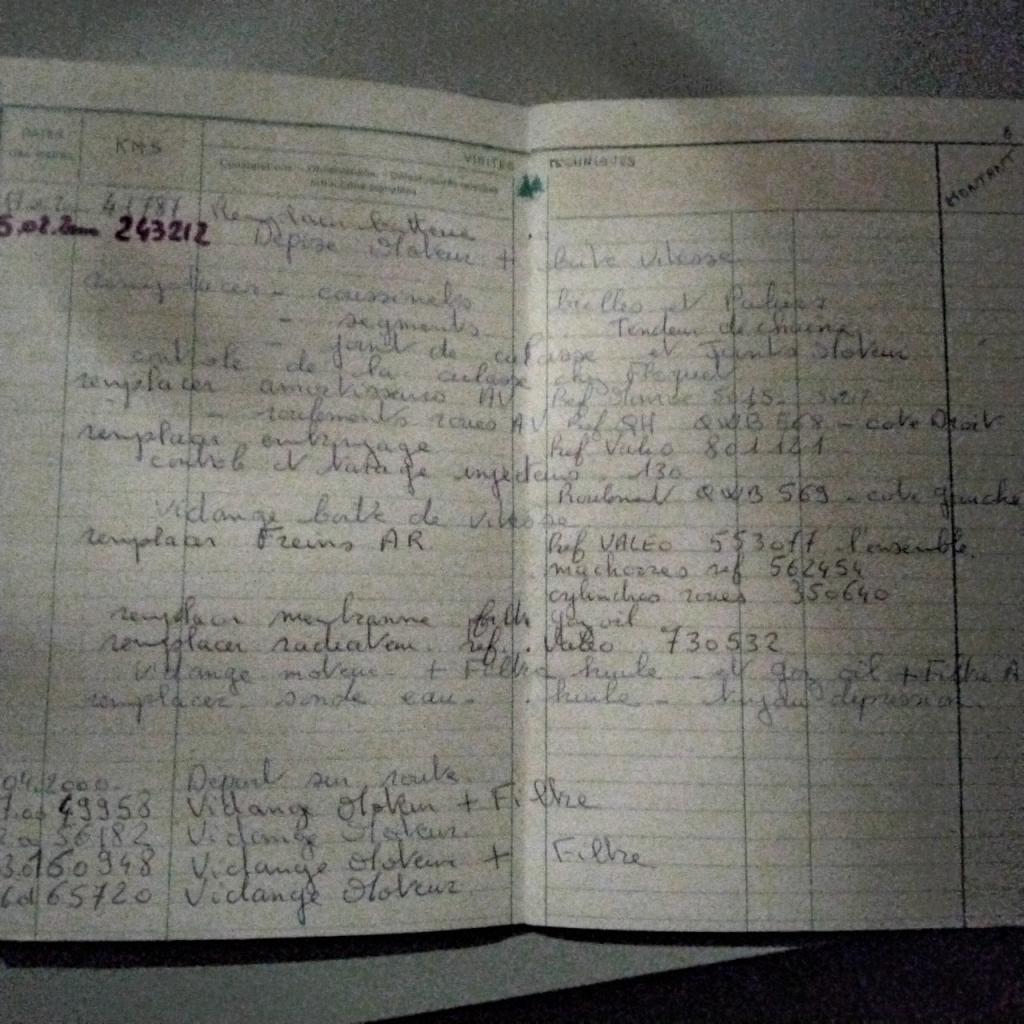 DATES KMS VISITES TECHNIQUES MONTANT
8
Remplacer batterie
243212 Dépose Moteur + boite vitesse
remplacer - coussinets bielles et Paliers
- segments Tendeur de chaine
- joint de culasse et Joints Moteur
controle de la culasse
remplacer amortisseurs AV Ref
- roulements roues AV Ref QH QWB 568 - cote Droit
remplacer embrayage Ref Valeo 801141
control et tarage injecteurs 130
Roulement QWB 569 - cote gauche
Vidange boite de vitesse
remplacer Freins AR Ref VALEO 553077 l'ensemble
machoires ref 562454
cylindres roues 350640
remplacer membranne filtre gaz oil
remplacer radiateur ref. Valeo 730532
Vidange moteur + Filtre huile - et gaz oil + Filtre A
remplacer sonde eau - huile - tuyau depression
04.2000 Depart sur route
49958 Vidange Moteur + Filtre
56182 Vidange Moteur
60948 Vidange Moteur + Filtre
65720 Vidange Moteur